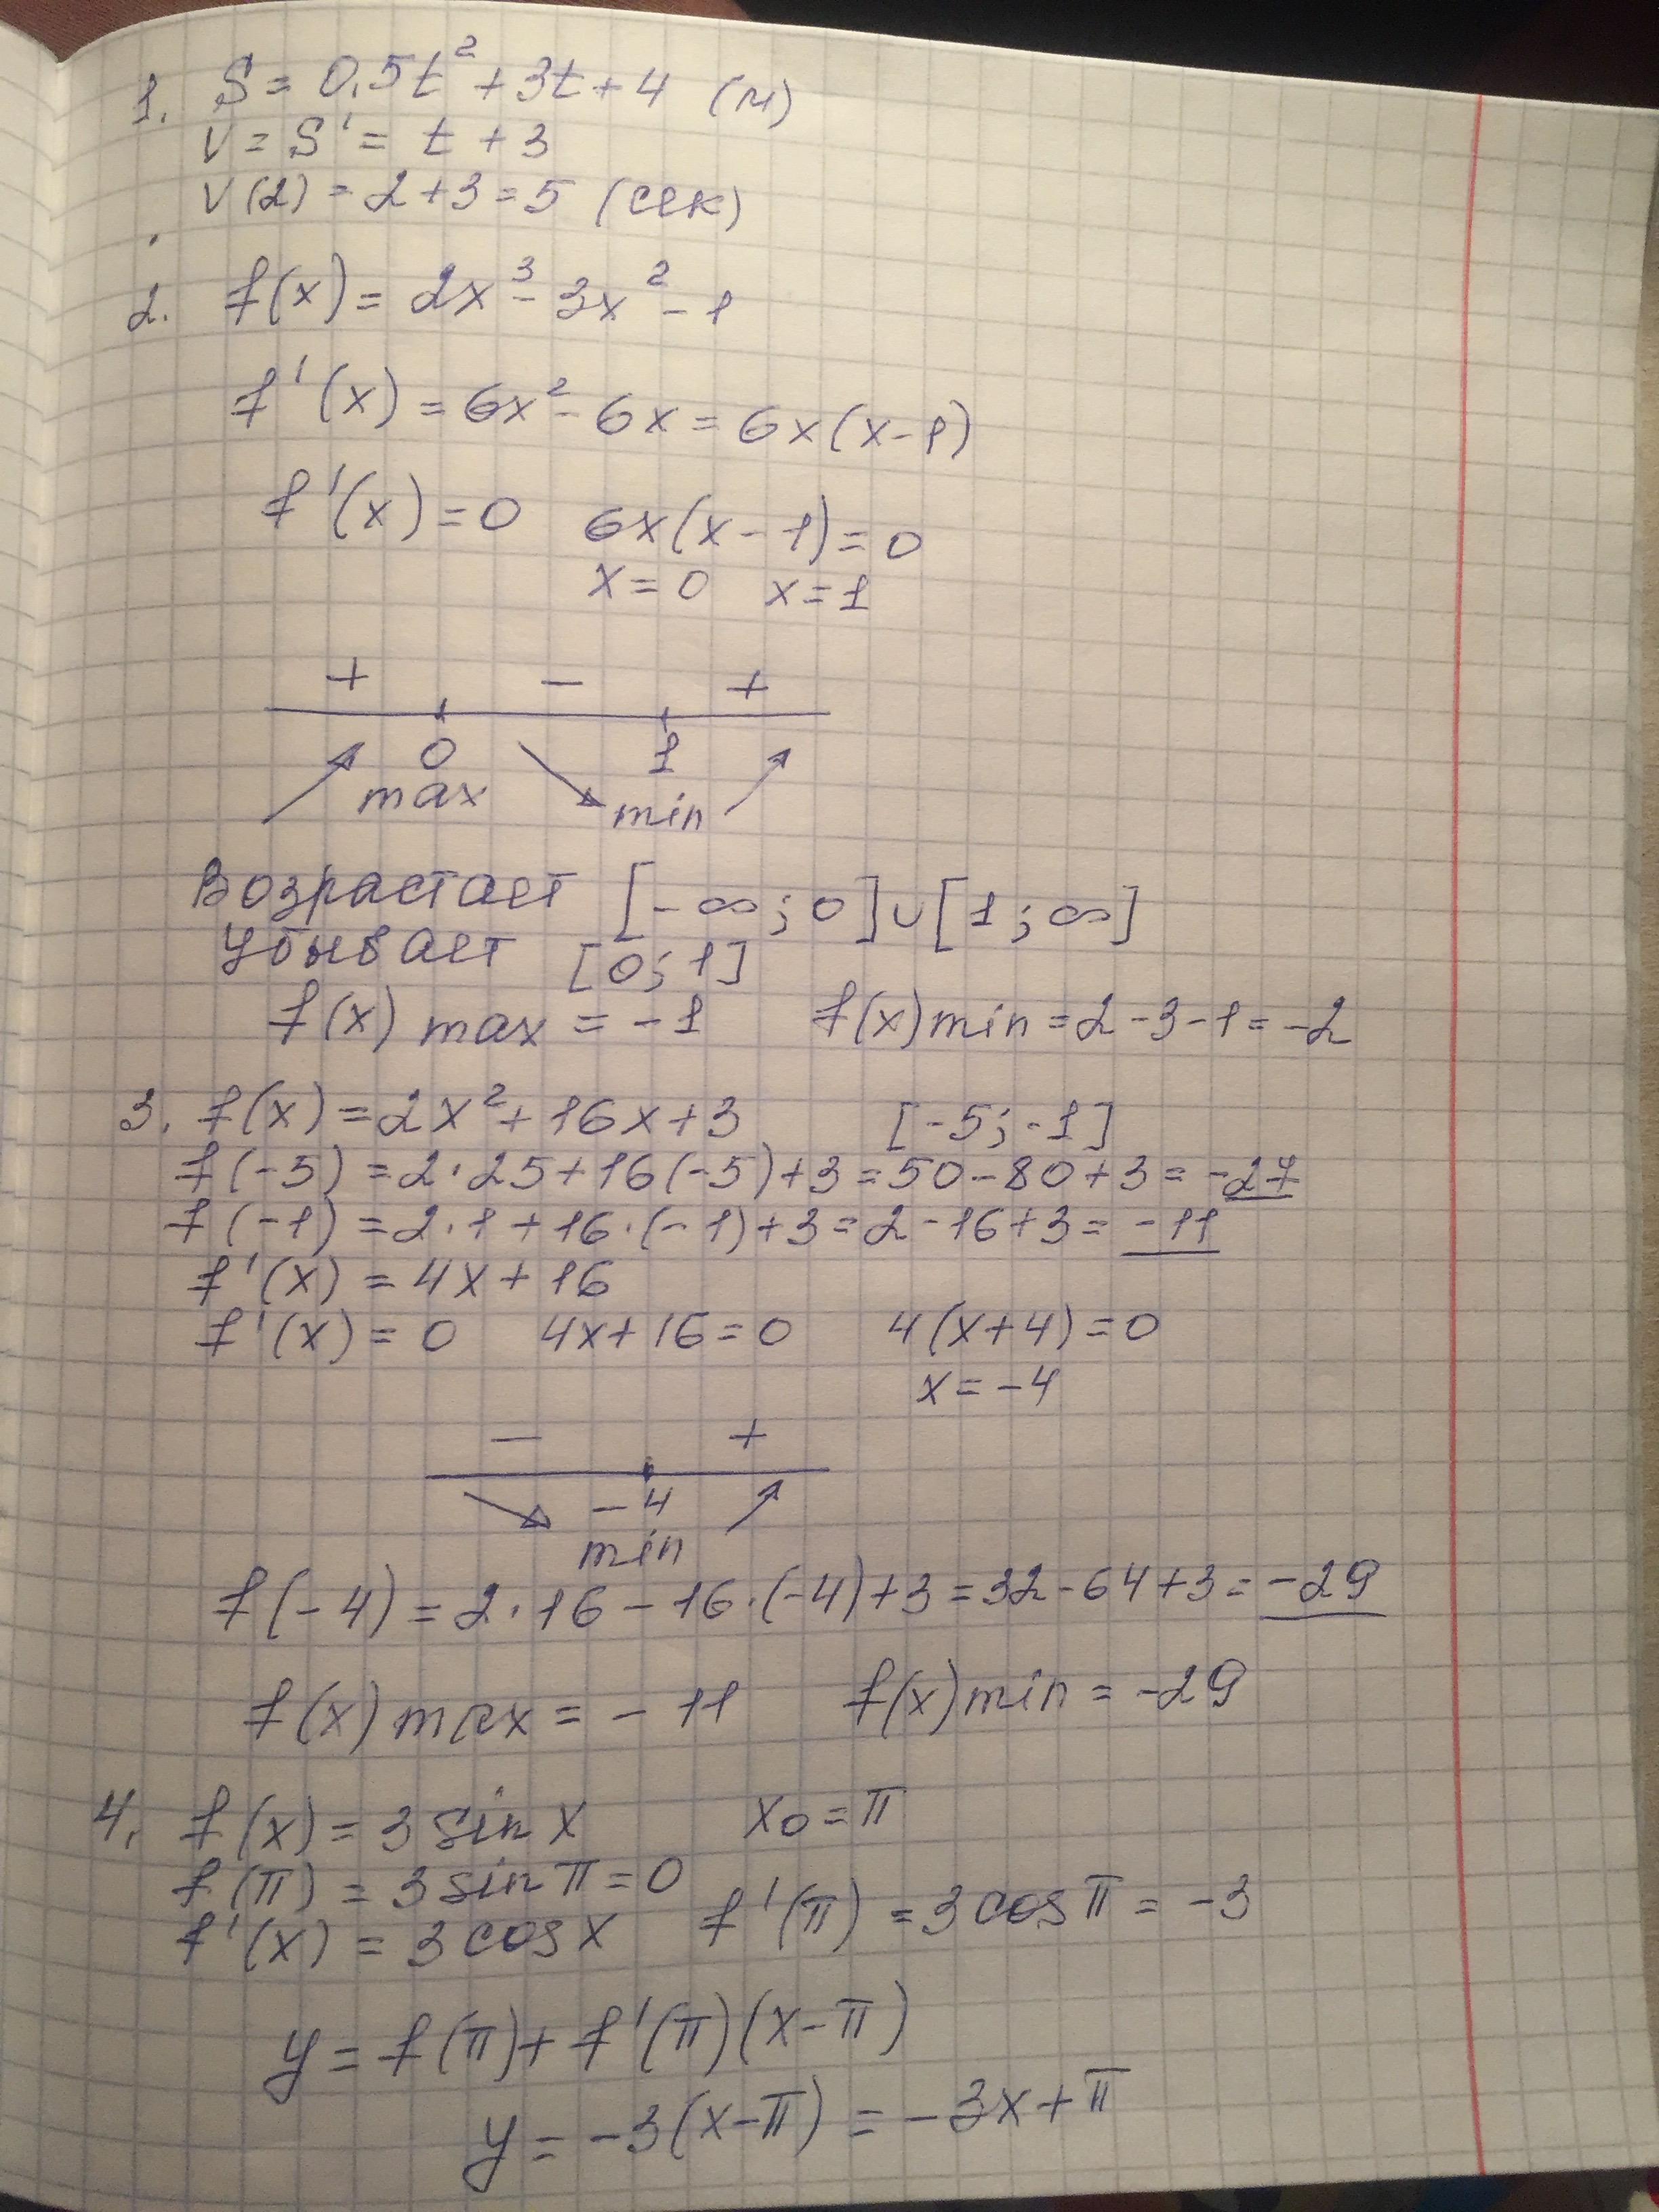 1. S = 0,5t² + 3t + 4 (м)
V = S' = t + 3
V(2) = 2 + 3 = 5 (сек)
2. f(x) = 2x³ - 3x² - 1
f'(x) = 6x² - 6x = 6x(x - 1)
f'(x) = 0 6x(x - 1) = 0
x = 0 x = 1
+ - +
0 1
max min
Возрастает [-∞; 0]∪[1; ∞]
Убывает [0; 1]
f(x) max = -1 f(x) min = 2 - 3 - 1 = -2
3. f(x) = 2x² + 16x + 3 [-5; -1]
f(-5) = 2·25 + 16(-5) + 3 = 50 - 80 + 3 = -27
f(-1) = 2·1 + 16·(-1) + 3 = 2 - 16 + 3 = -11
f'(x) = 4x + 16
f'(x) = 0 4x + 16 = 0 4(x + 4) = 0
x = -4
- +
-4
min
f(-4) = 2·16 - 16·(-4) + 3 = 32 - 64 + 3 = -29
f(x) max = -11 f(x) min = -29
4. f(x) = 3 sin x x₀ = π
f(π) = 3 sin π = 0
f'(x) = 3 cos x f'(π) = 3 cos π = -3
y = f(π) + f'(π)(x - π)
y = -3(x - π) = -3x + π